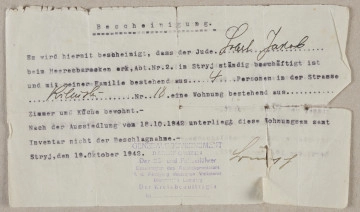 Bescheinigung.
Es wird hiermit bescheinigt, dass der Jude. Jakob
beim Heeresbarackenwerk, Abt. Nr. 2. in Stryj ständig beschäftigt ist
und mit seiner Familie bestehend aus 4 Personen in der Strasse
Nr. 10 eine Wohnung bestehend aus
Zimmer und Küche bewohnt.-
Nach der Aussiedlung vom 18.10.1942 unterliegt diese Wohnung samt
Inventar nicht der Beschlagnahme.-
Stryj, den 19. Oktober 1942.